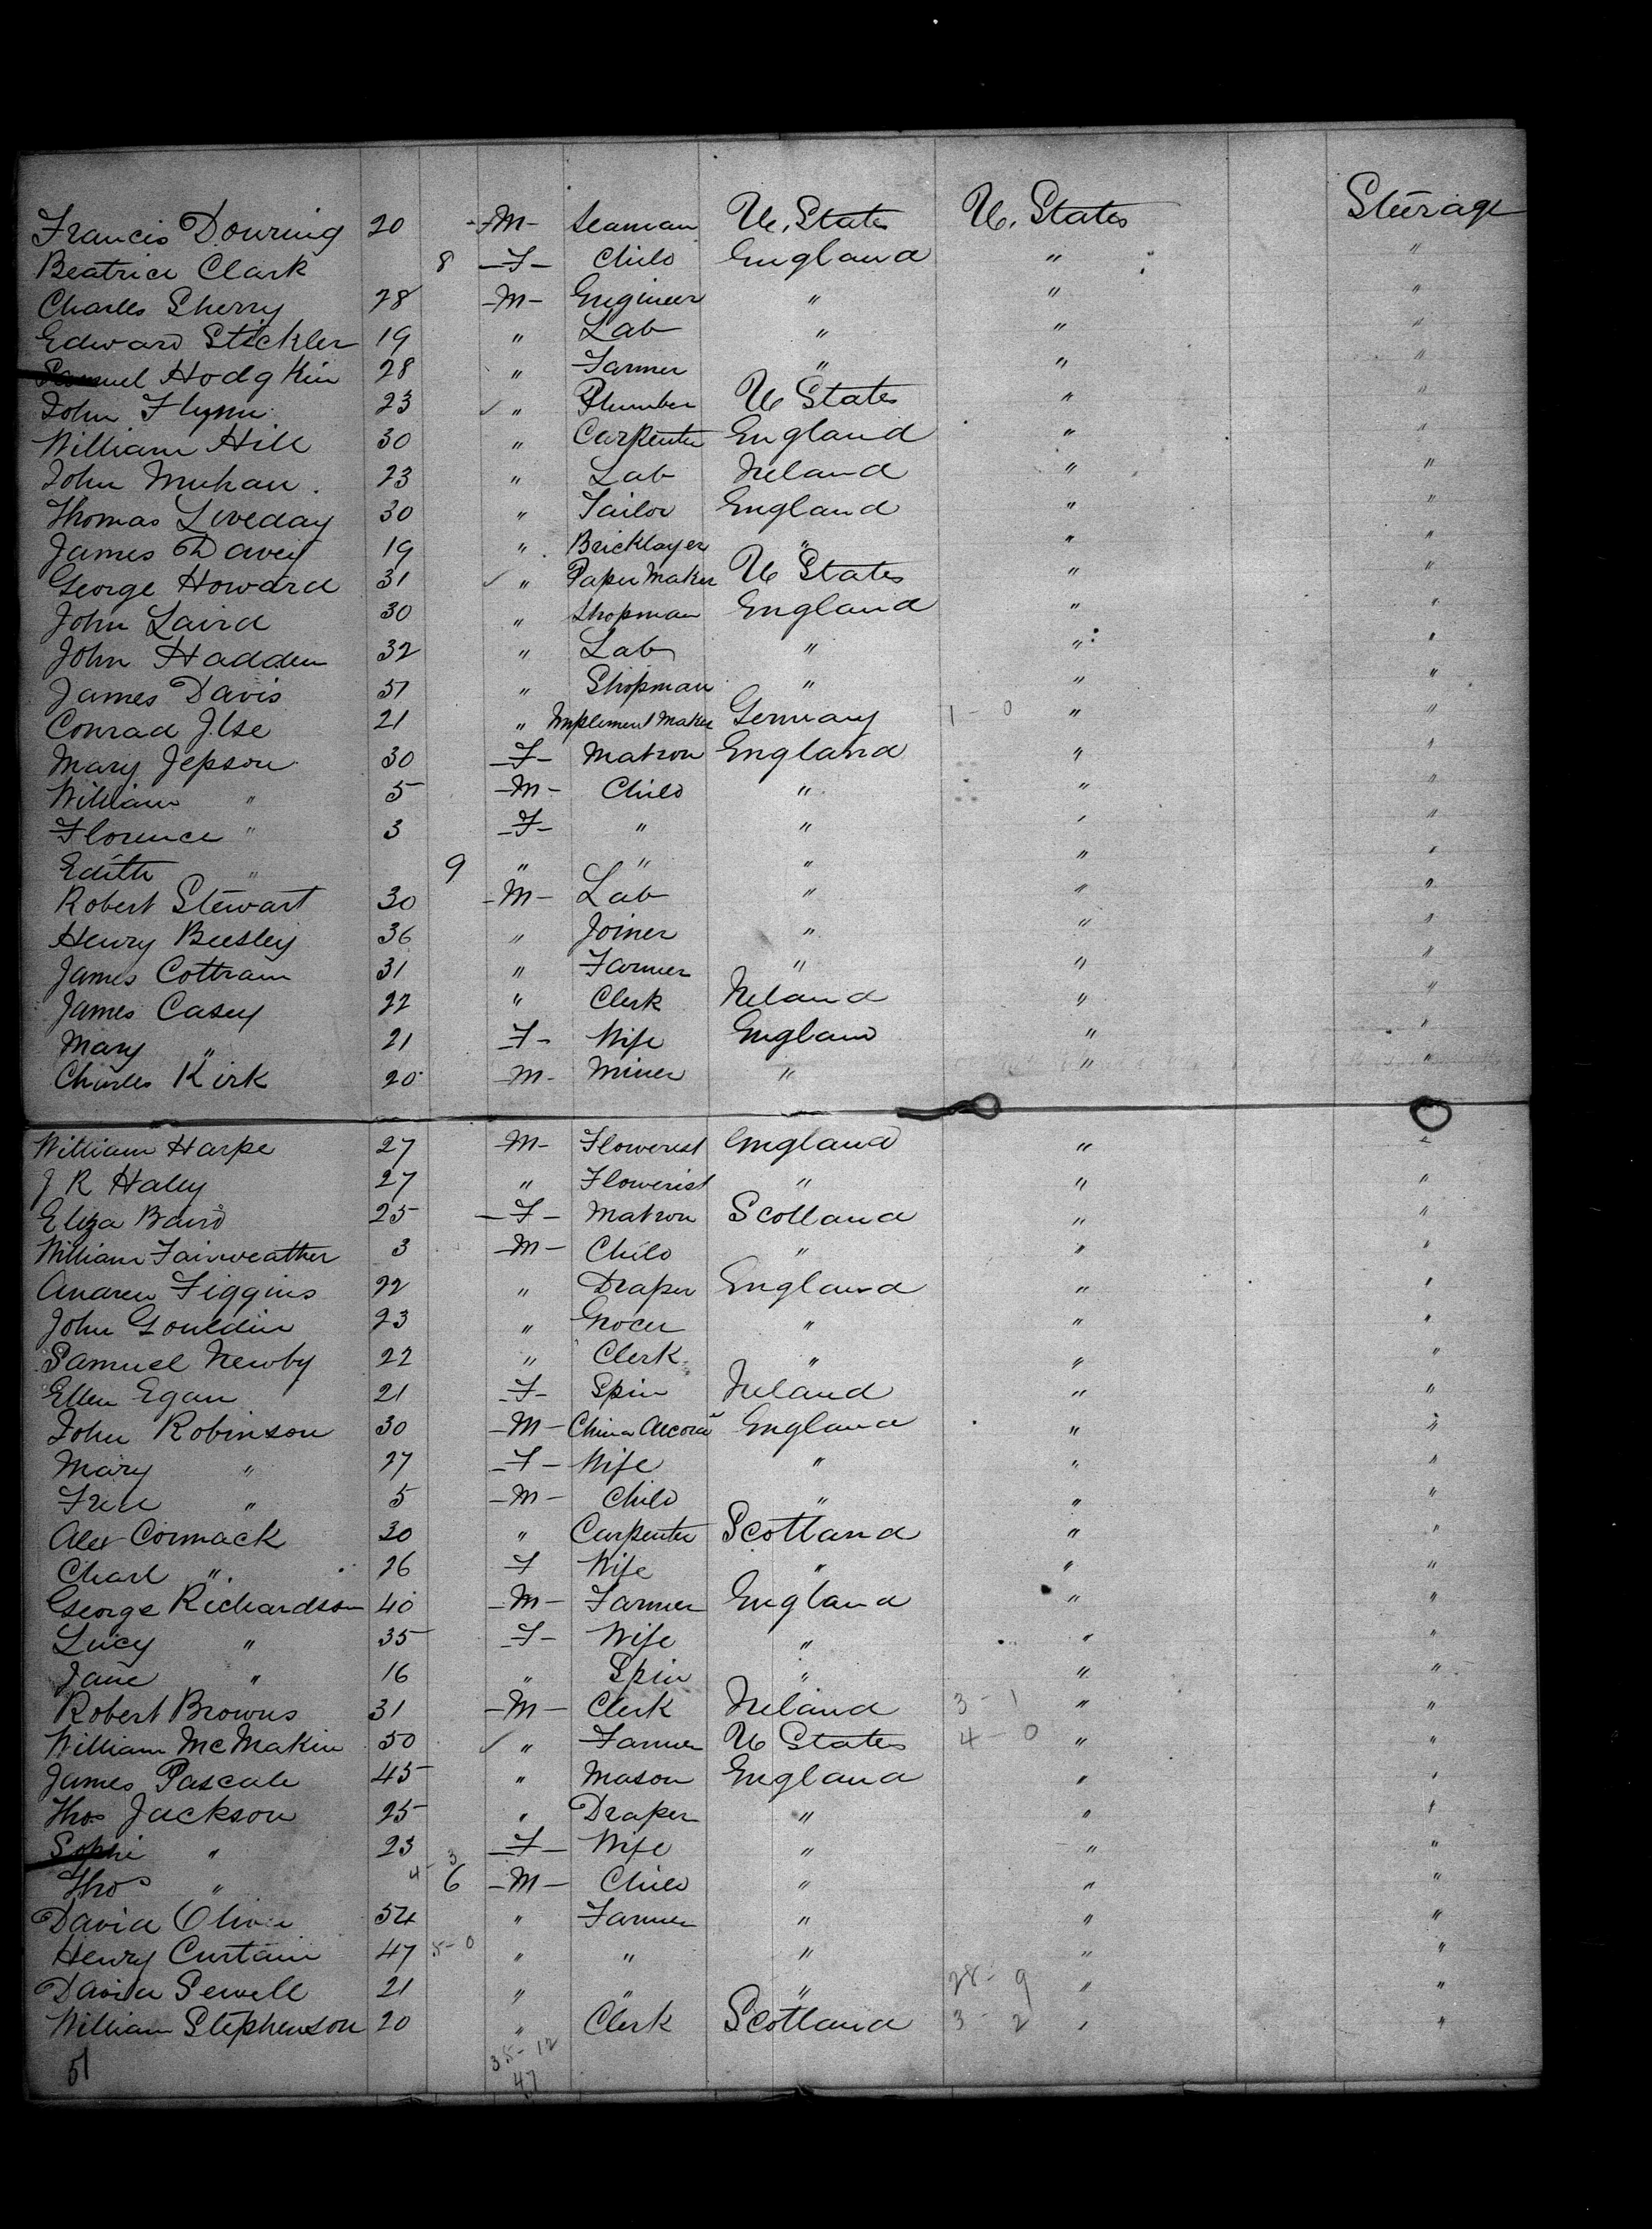 Francis Douring 20 -M- Seaman U. States U. States Steerage
Beatrice Clark 8 -F- Child England " "
Charles Sherry 28 -M- Engineer " " "
Edward Stickler 19 " Lab " " "
Samuel Hodgkin 28 " Farmer " " "
John Flynn 23 ✓ " Plumber U States " "
William Hill 30 " Carpenter England " "
John Muhan 23 " Lab Ireland " "
Thomas Liveday 30 " Tailor England " "
James Davey 19 " Bricklayer " " "
George Howard 31 ✓ " Paper Maker U States " "
John Laird 30 " Shopman England " "
John Hadden 32 " Lab " " "
James Davis 51 " Shopman " " "
Conrad Ilse 21 " Implement Maker Germany 1-0 " "
Mary Jepson 30 -F- Matron England " "
William " 5 -M- Child " " "
Florence " 3 -F- " " " "
Edith " 9 " " " " "
Robert Stewart 30 -M- Lab " " "
Henry Beesley 36 " Joiner " " "
James Cottram 31 " Farmer " " "
James Casey 22 " Clerk Ireland " "
Mary " 21 -F- Wife England " "
Charles Kirk 20 -M- Miner " " "
William Harpe 27 -M- Flowerist England " "
J R Haley 27 " Flowerist " " "
Eliza Baird 25 -F- Matron Scotland " "
William Fairweather 3 -M- Child " " "
Andrew Figgins 22 " Draper England " "
John Gouldin 23 " Grocer " " "
Samuel Newby 22 " Clerk " " "
Ellen Egan 21 -F- Spin Ireland " "
John Robinson 30 -M- China Decorar England " "
Mary " 27 -F- Wife " " "
Fred " 5 -M- Child " " "
Alex Cormack 30 " Carpenter Scotland " "
Charl " 26 F Wife " " "
George Richardson 40 -M- Farmer England " "
Lucy " 35 -F- Wife " " "
Jane " 16 " Spin " " "
Robert Browns 31 -M- Clerk Ireland 3-1 " "
William McMakin 50 ✓ " Farmer U States 4-0 " "
James Pascale 45 " Mason England " "
Thos Jackson 25 " Draper " " "
Sophi " 23 -F- Wife " " "
Thos " 4-3 6 -M- Child " " "
David Oliver 54 " Farmer " " "
Henry Curtain 47 5-0 " " " " "
David Sewell 21 " " " 28-9 " "
William Stephenson 20 " Clerk Scotland 3-2 " "
51 35-12
47